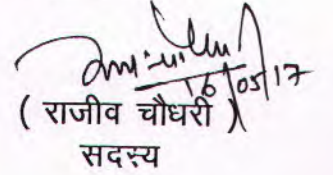 16/05/17
( राजीव चौधरी )
सदस्य